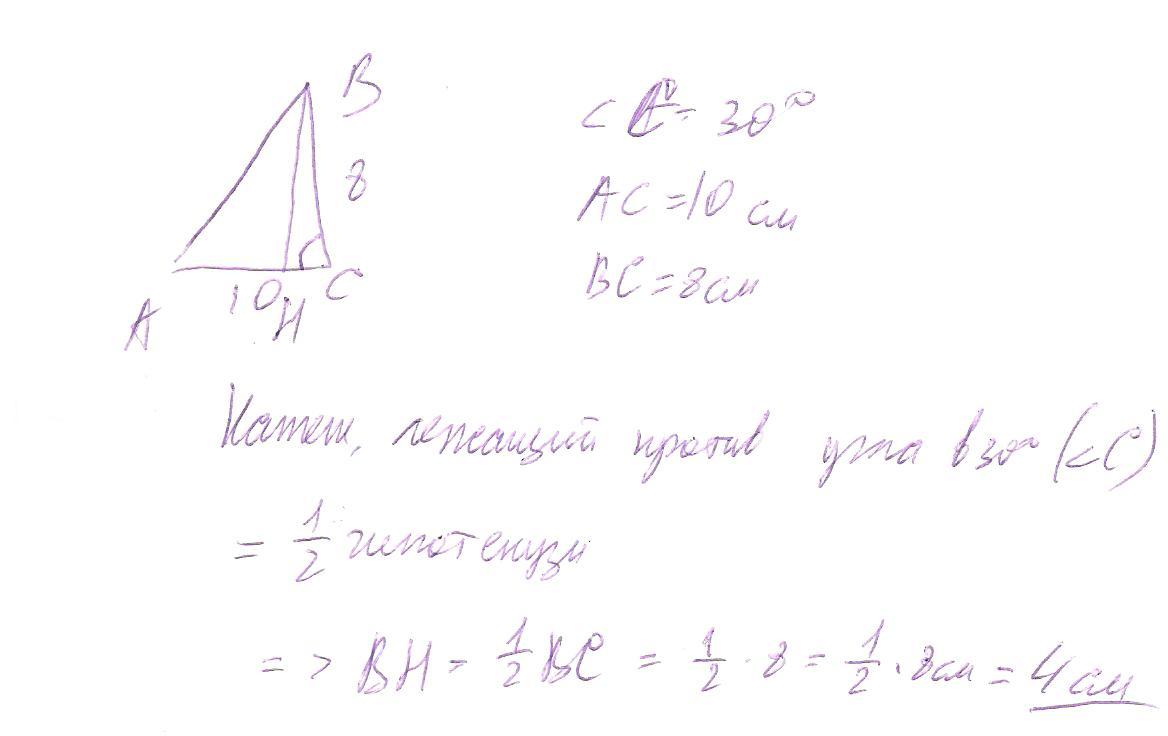 B
8
10
A
H
C
<C = 30°
AC = 10 см
BC = 8 см
Катет, лежащий против угла в 30° (<C)
= 1/2 гипотенузы
=> BH = 1/2 BC = 1/2 · 8 = 1/2 · 8 см = 4 см